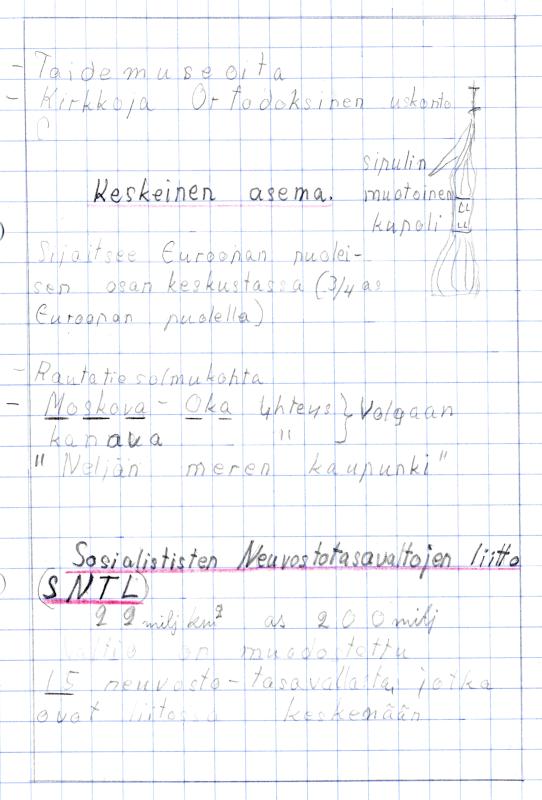 - Taidemuseoita
- Kirkkoja Ortodoksinen uskonto
sipulin
muotoinen
kupoli
Keskeinen asema.
Sijaitsee Euroopan puolei-
sen osan keskustassa (3/4 as
Euroopan puolella)
- Rautatiesolmukohta
- Moskova - Oka yhteys } Volgaan
kanava " }
" Neljän meren kaupunki "
Sosialististen Neuvostotasavaltojen liitto
(SNTL)
22 milj km² as 200 milj
Valtio on muodostettu
15 neuvosto-tasavallasta, jotka
ovat liitossa keskenään